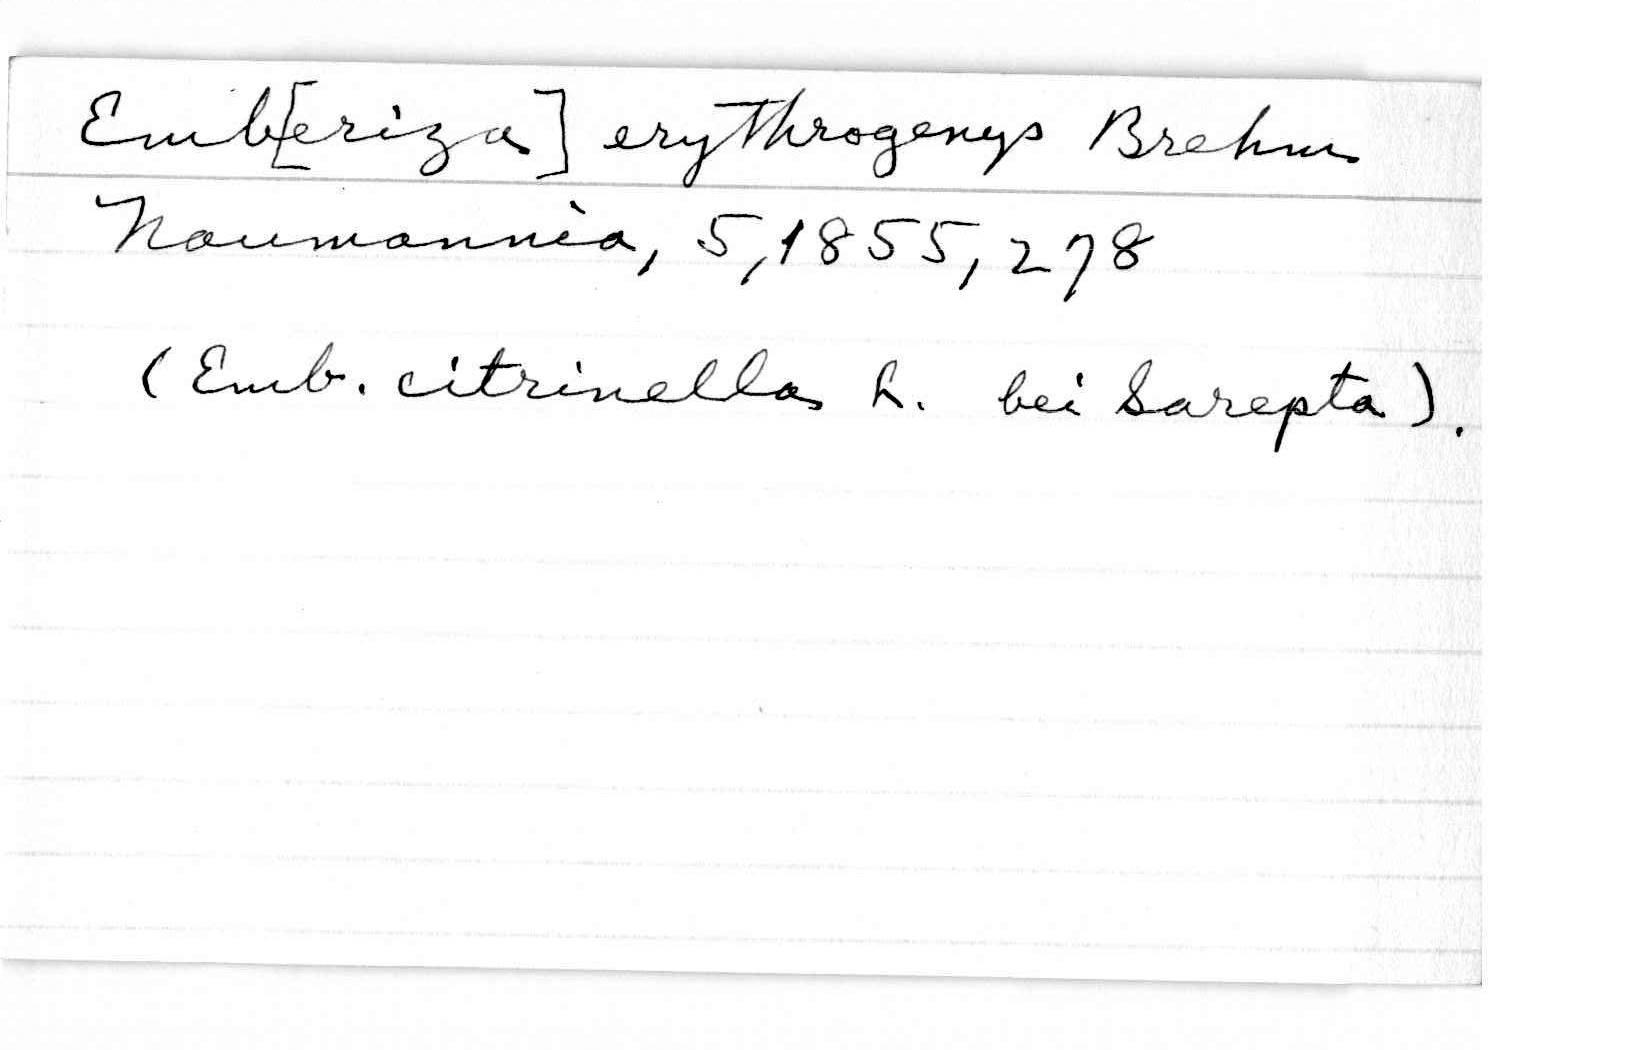 Emb[eriza] erythrogenys Brehm
Naumannia, 5, 1855, 278
(Emb. citrinella L. bei Sarepta).